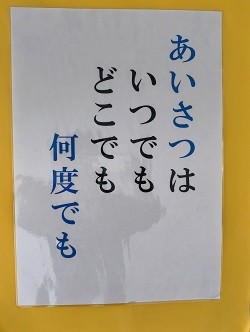 あいさつは
いつでも
どこでも
何度でも